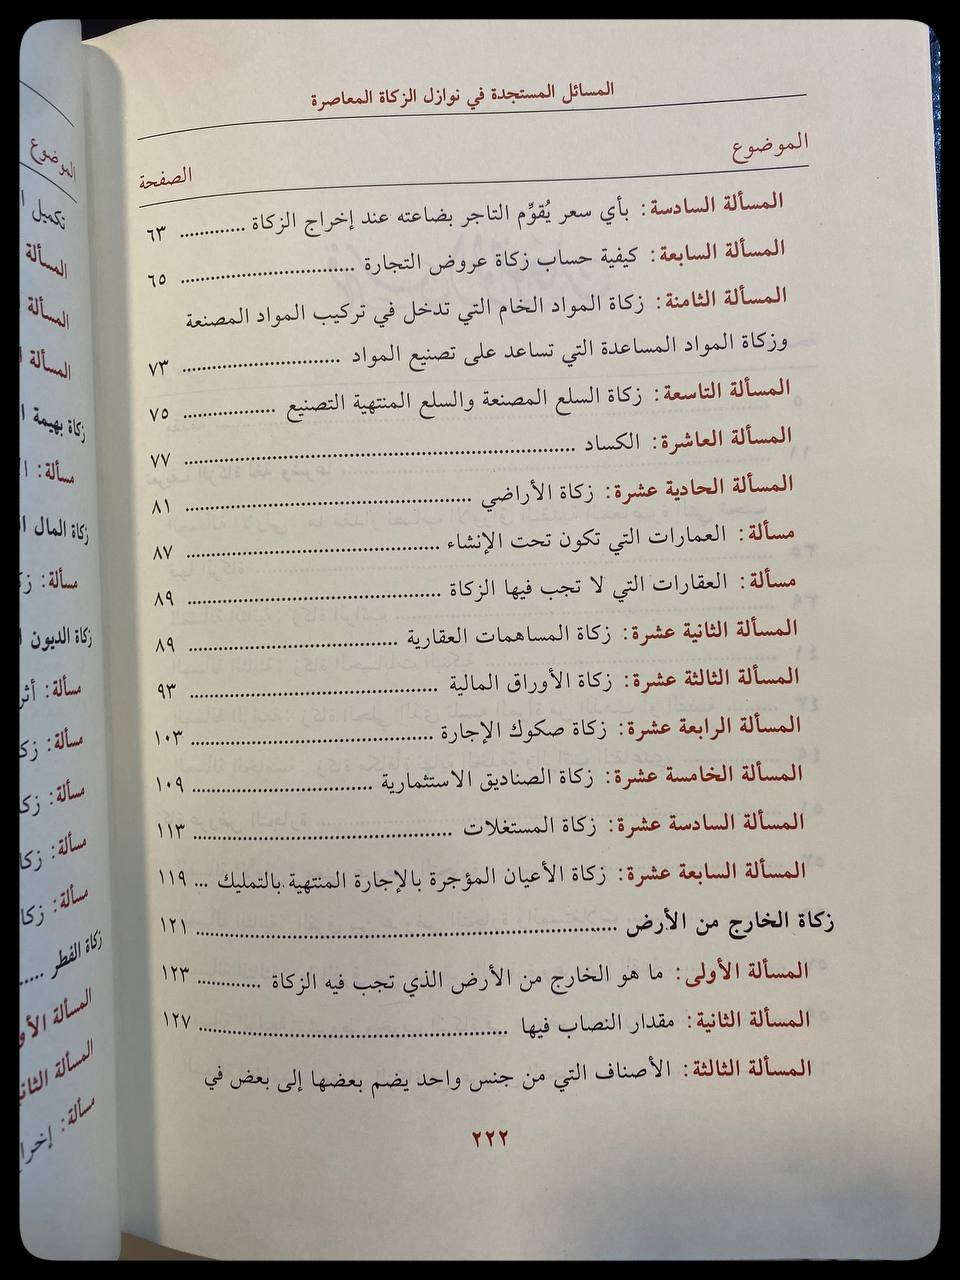 المسائل المستجدة في نوازل الزكاة المعاصرة
الموضوع الصفحة
المسألة السادسة: بأي سعر يُقوِّم التاجر بضاعته عند إخراج الزكاة ............ ٦٣
المسألة السابعة: كيفية حساب زكاة عروض التجارة ................................ ٦٥
المسألة الثامنة: زكاة المواد الخام التي تدخل في تركيب المواد المصنعة
وزكاة المواد المساعدة التي تساعد على تصنيع المواد ............................. ٧٣
المسألة التاسعة: زكاة السلع المصنعة والسلع المنتهية التصنيع ................ ٧٥
المسألة العاشرة: الكساد ........................................................ ٧٧
المسألة الحادية عشرة: زكاة الأراضي ........................................ ٨١
مسألة: العمارات التي تكون تحت الإنشاء .................................... ٨٧
مسألة: العقارات التي لا تجب فيها الزكاة .................................... ٨٩
المسألة الثانية عشرة: زكاة المساهمات العقارية ............................... ٨٩
المسألة الثالثة عشرة: زكاة الأوراق المالية ................................... ٩٣
المسألة الرابعة عشرة: زكاة صكوك الإجارة ................................... ١٠٣
المسألة الخامسة عشرة: زكاة الصناديق الاستثمارية .......................... ١٠٩
المسألة السادسة عشرة: زكاة المستغلات ..................................... ١١٣
المسألة السابعة عشرة: زكاة الأعيان المؤجرة بالإجارة المنتهية بالتمليك ... ١١٩
زكاة الخارج من الأرض .......................................................... ١٢١
المسألة الأولى: ما هو الخارج من الأرض الذي تجب فيه الزكاة ............ ١٢٣
المسألة الثانية: مقدار النصاب فيها ............................................ ١٢٧
المسألة الثالثة: الأصناف التي من جنس واحد يضم بعضها إلى بعض في
٢٢٢
الموضوع
تكميل
المسألة
المسألة
المسألة
زكاة بهيمة
مسألة:
زكاة المال
مسألة:
زكاة الديون
مسألة:
مسألة:
مسألة:
مسألة:
مسألة:
زكاة الفطر
المسألة
المسألة
مسألة: